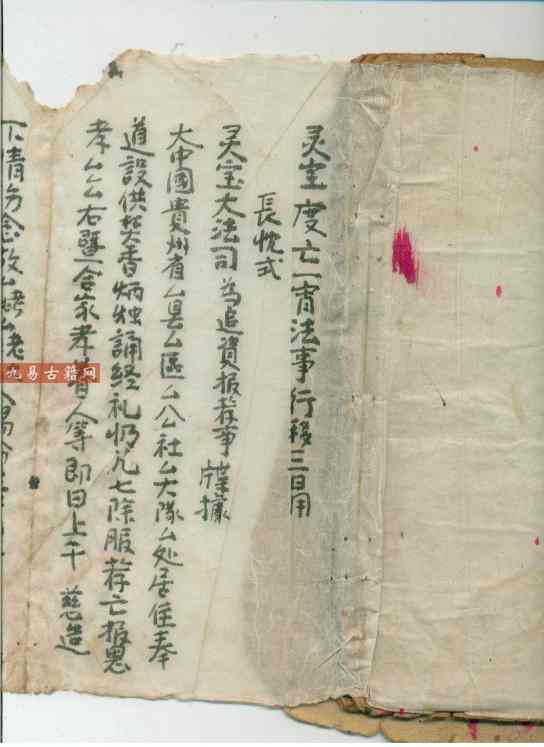 灵宝度亡一宵法事行移三日用
長忱式
灵宝大法司 为追資报荐事 牒據
大中國貴州省厶县厶區厶公社厶大隊厶处居住奉
道設供焚香炳烛誦经礼忏 七除服荐亡报恩
孝厶厶右暨一合家孝眷人等即日上干 慈造
下情
九易古籍网